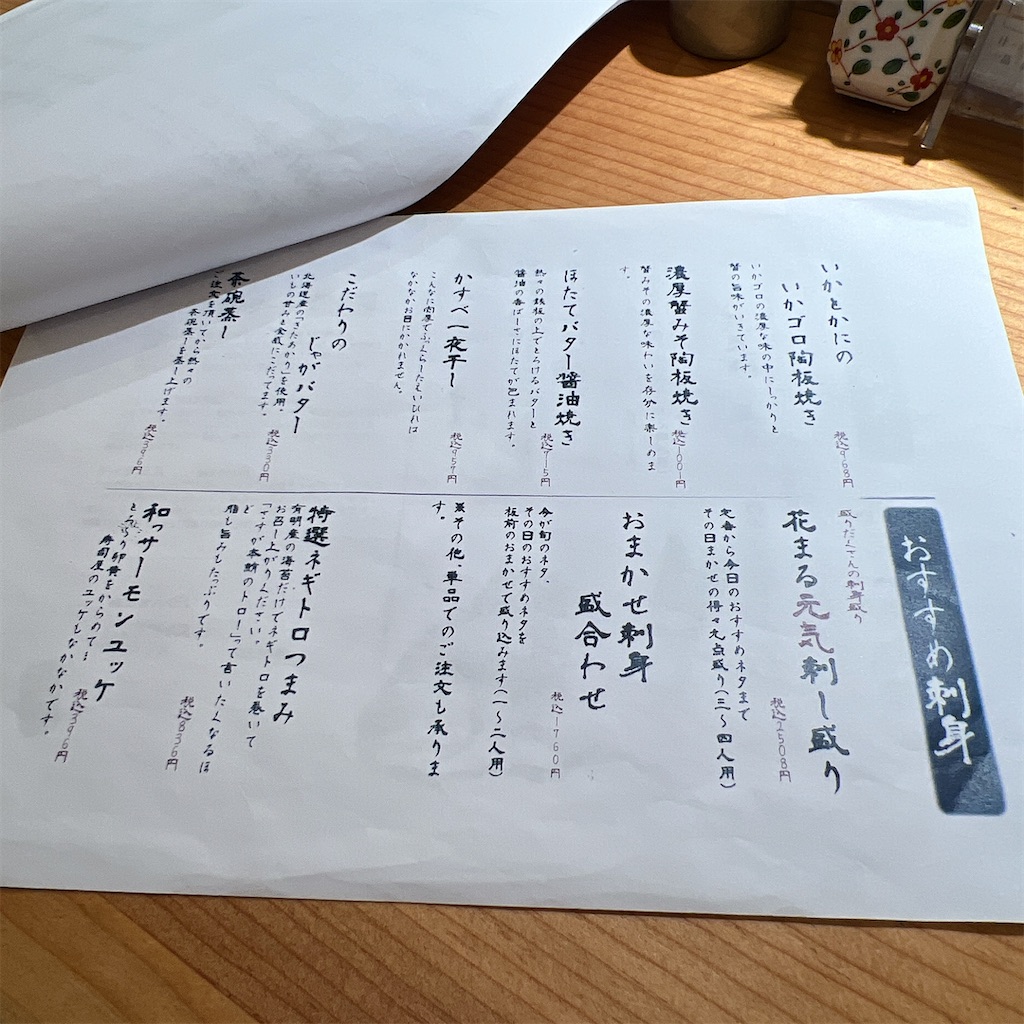 いかとかにの
いかゴロ陶板焼き
税込968円
いかゴロの濃厚な味の中にしっかりと
蟹の旨味がいきています。
濃厚蟹みそ陶板焼き
税込1001円
蟹みその濃厚な味わいを存分に楽しめま
す。
ほたてバター醤油焼き
税込715円
熱々の鉄板の上でとろけるバターと
醤油の香ばしさにほたてが包まれます。
かすべ一夜干し
税込957円
こんなに肉厚でふっくらしたえいひれは
なかなかお目にかかれません。
こだわりの
じゃがバター
税込330円
北海道産の「きたあかり」を使用。
いもの甘みと食感にこだってます。
茶碗蒸し
税込396円
ご注文を頂いてから熱々の
茶碗蒸しを蒸し上げます。
おすすめ刺身
盛りだくさんの刺身盛り
花まる元気刺し盛り
税込2508円
定番から今日のおすすめネタまで
その日まかせの得々九点盛り(三〜四人用)
おまかせ刺身
盛合わせ
税込1760円
今が旬のネタ、
その日のおすすめネタを
板前のおまかせで盛り込みます(一〜二人用)
※その他、単品でのご注文も承りま
す。
特選ネギトロつまみ
税込836円
有明産の海苔だけでネギトロを巻いて
お召し上がりください。
「さすが本鮪のトロー」って言いたくなるほ
ど
脂も旨みもたっぷりです。
和っサーモンユッケ
税込396円
とろ〜り卵黄をからめて…
寿司屋のユッケもなかなかです。